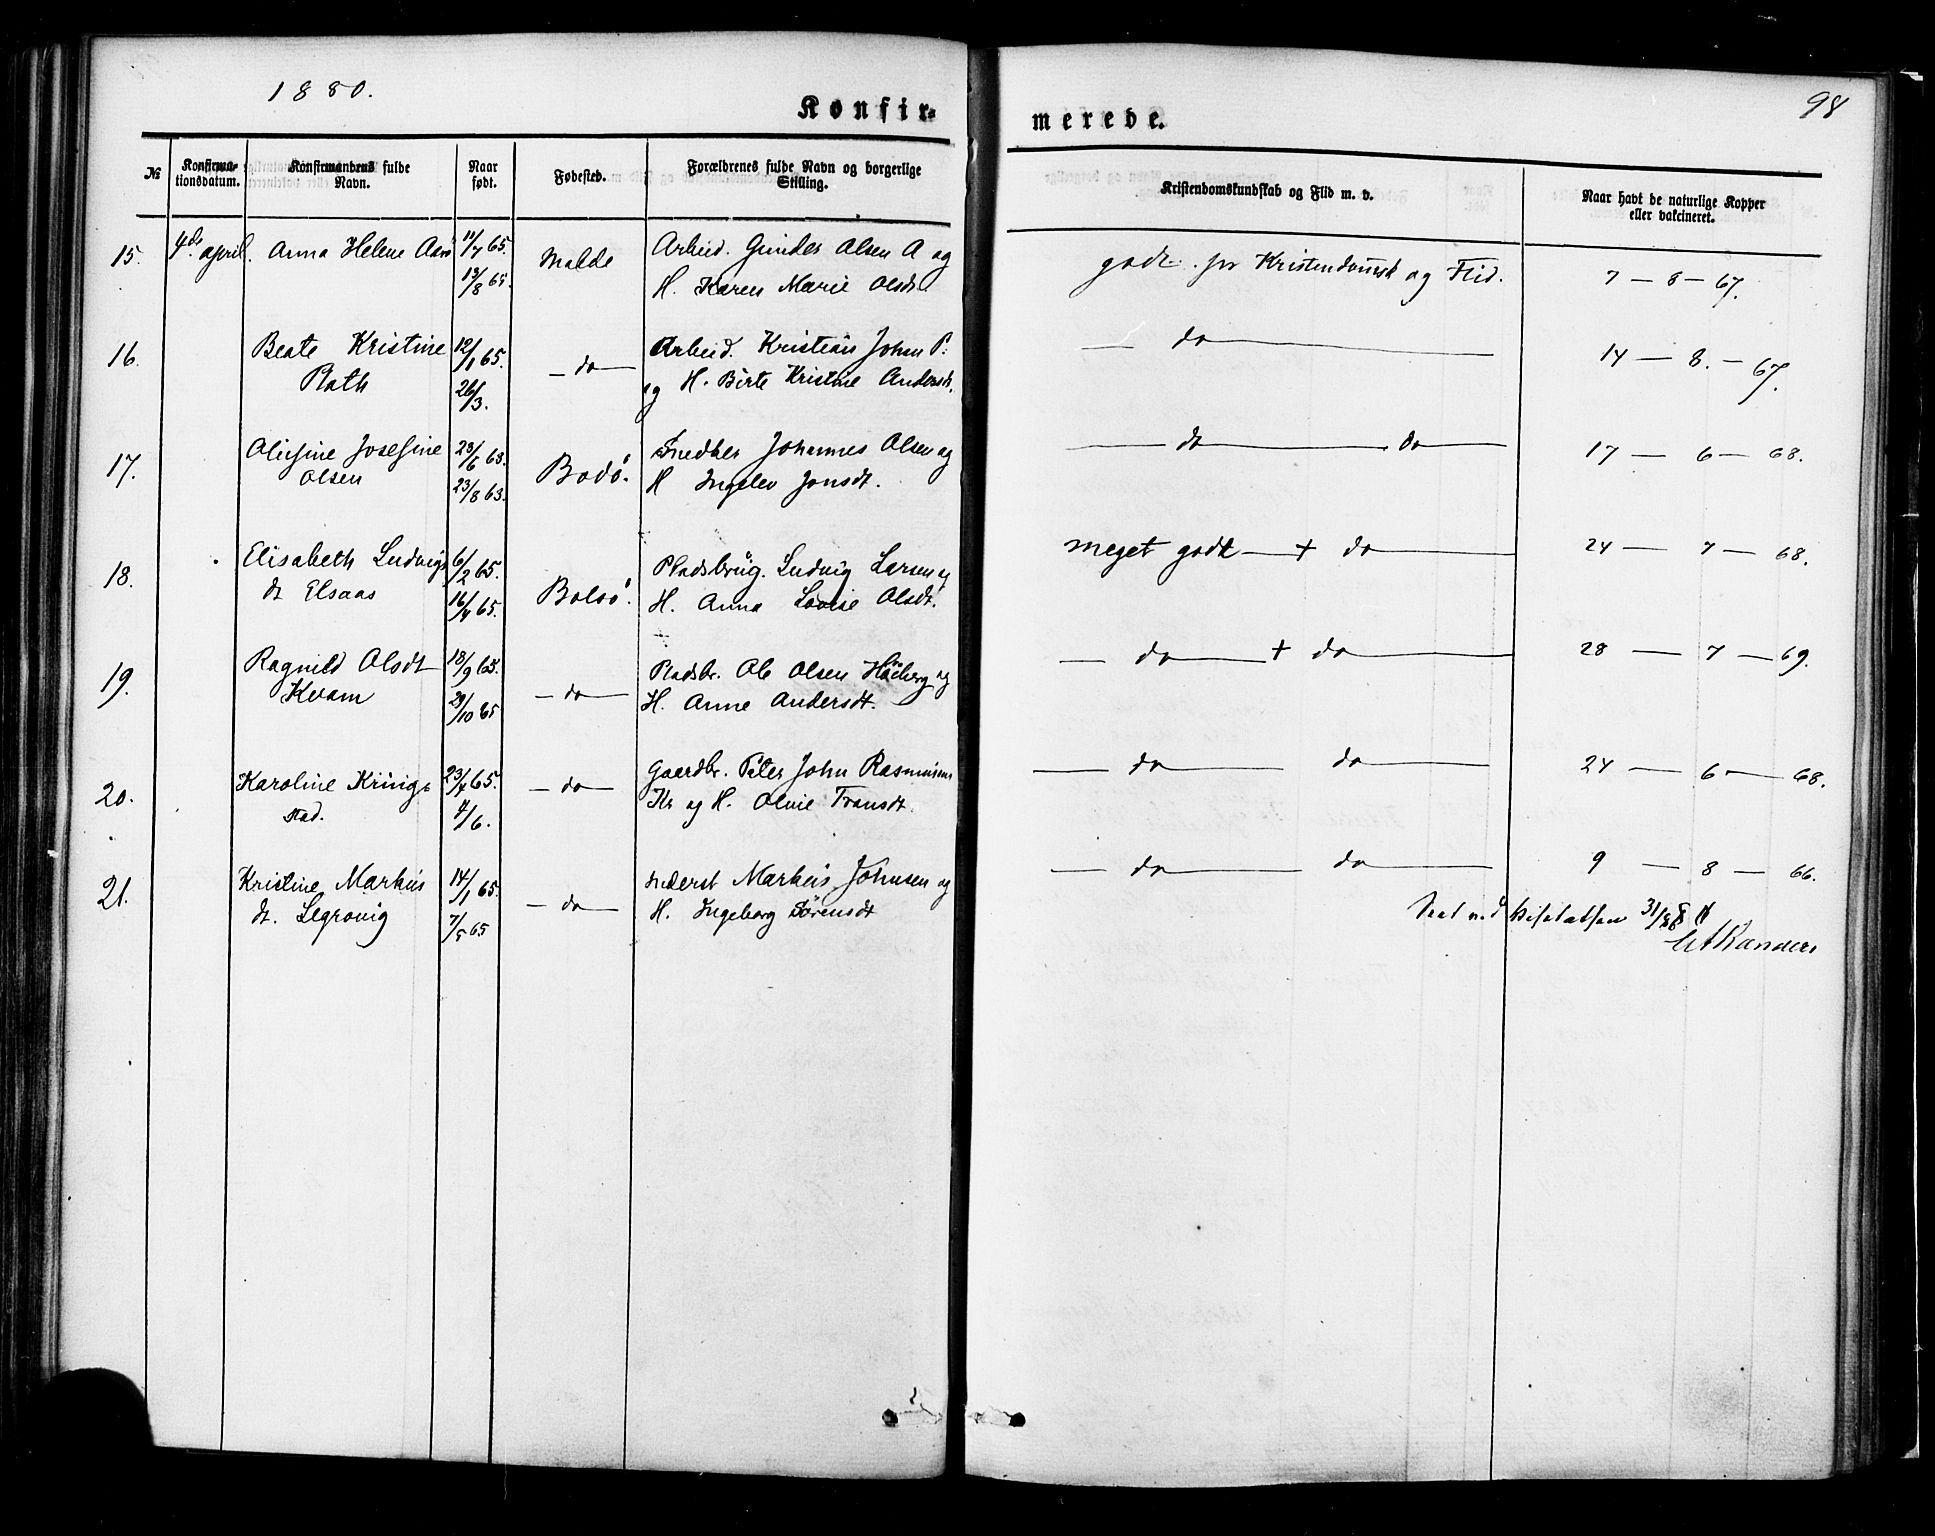 1880.
98
Konfir=
merede.
№
Konfirma-
tionsdatum.
Konfirmandens fulde
Navn.
Naar
født.
Fødested.
Forældrenes fulde Navn og borgerlige
Stilling.
Kristendomskundskab og Flid m. v.
Naar havt de naturlige Kopper
eller vakcineret.
15. 4de april. Anna Helene 11/7 65. Molde Arbeid. Gunder Olsen A og godt pr Kristendomsk og Flid. 7 — 8 — 67.
13/8 65. H. Karen Marie Olsdt.
16. Beate Kristine 12/1 65. — do — Arbeid. Kristian Johan P. — do — 14 — 8. — 67.
Roth 26/3. og H. Birte Kristine Andersdt.
17. Olufine Josefine 23/6 63. Bodø. Snedker Johannes Olsen og — do — do — 17 — 6 — 68.
Olsen 23/8 63. H Ingelev Jonsdt.
18. Elisabeth Ludvigs 6/2 65. Bolsø. Pladsbrug. Ludvig Larsen og meget godt — + do — 24 — 7 — 68.
dt Elsaas 16/4 65. H. Anna Lovise Olsdt.
19. Ragnild Olsdt 18/9 65. — do — Pladsbr. Ole Olsen Høiberg og — do — + do — 28 — 7 — 69.
Kvam 29/10 65 H. Anne Andersdt.
20. Karoline Kring- 23/4 65. — do — Gaardbr. Peter John Rasmusen — do — do — 24 — 6 — 68.
stad. 4/6. Kr og H. Olvie Transdt.
21. Kristine Markus 14/1 65. — do — Inderst Markus Johnsen og — do — do — 9 — 8 — 66.
dt. Legrovig 7/5 65 H. Ingeborg Sørensdt
Seet ved Visitatsen 31/8 8